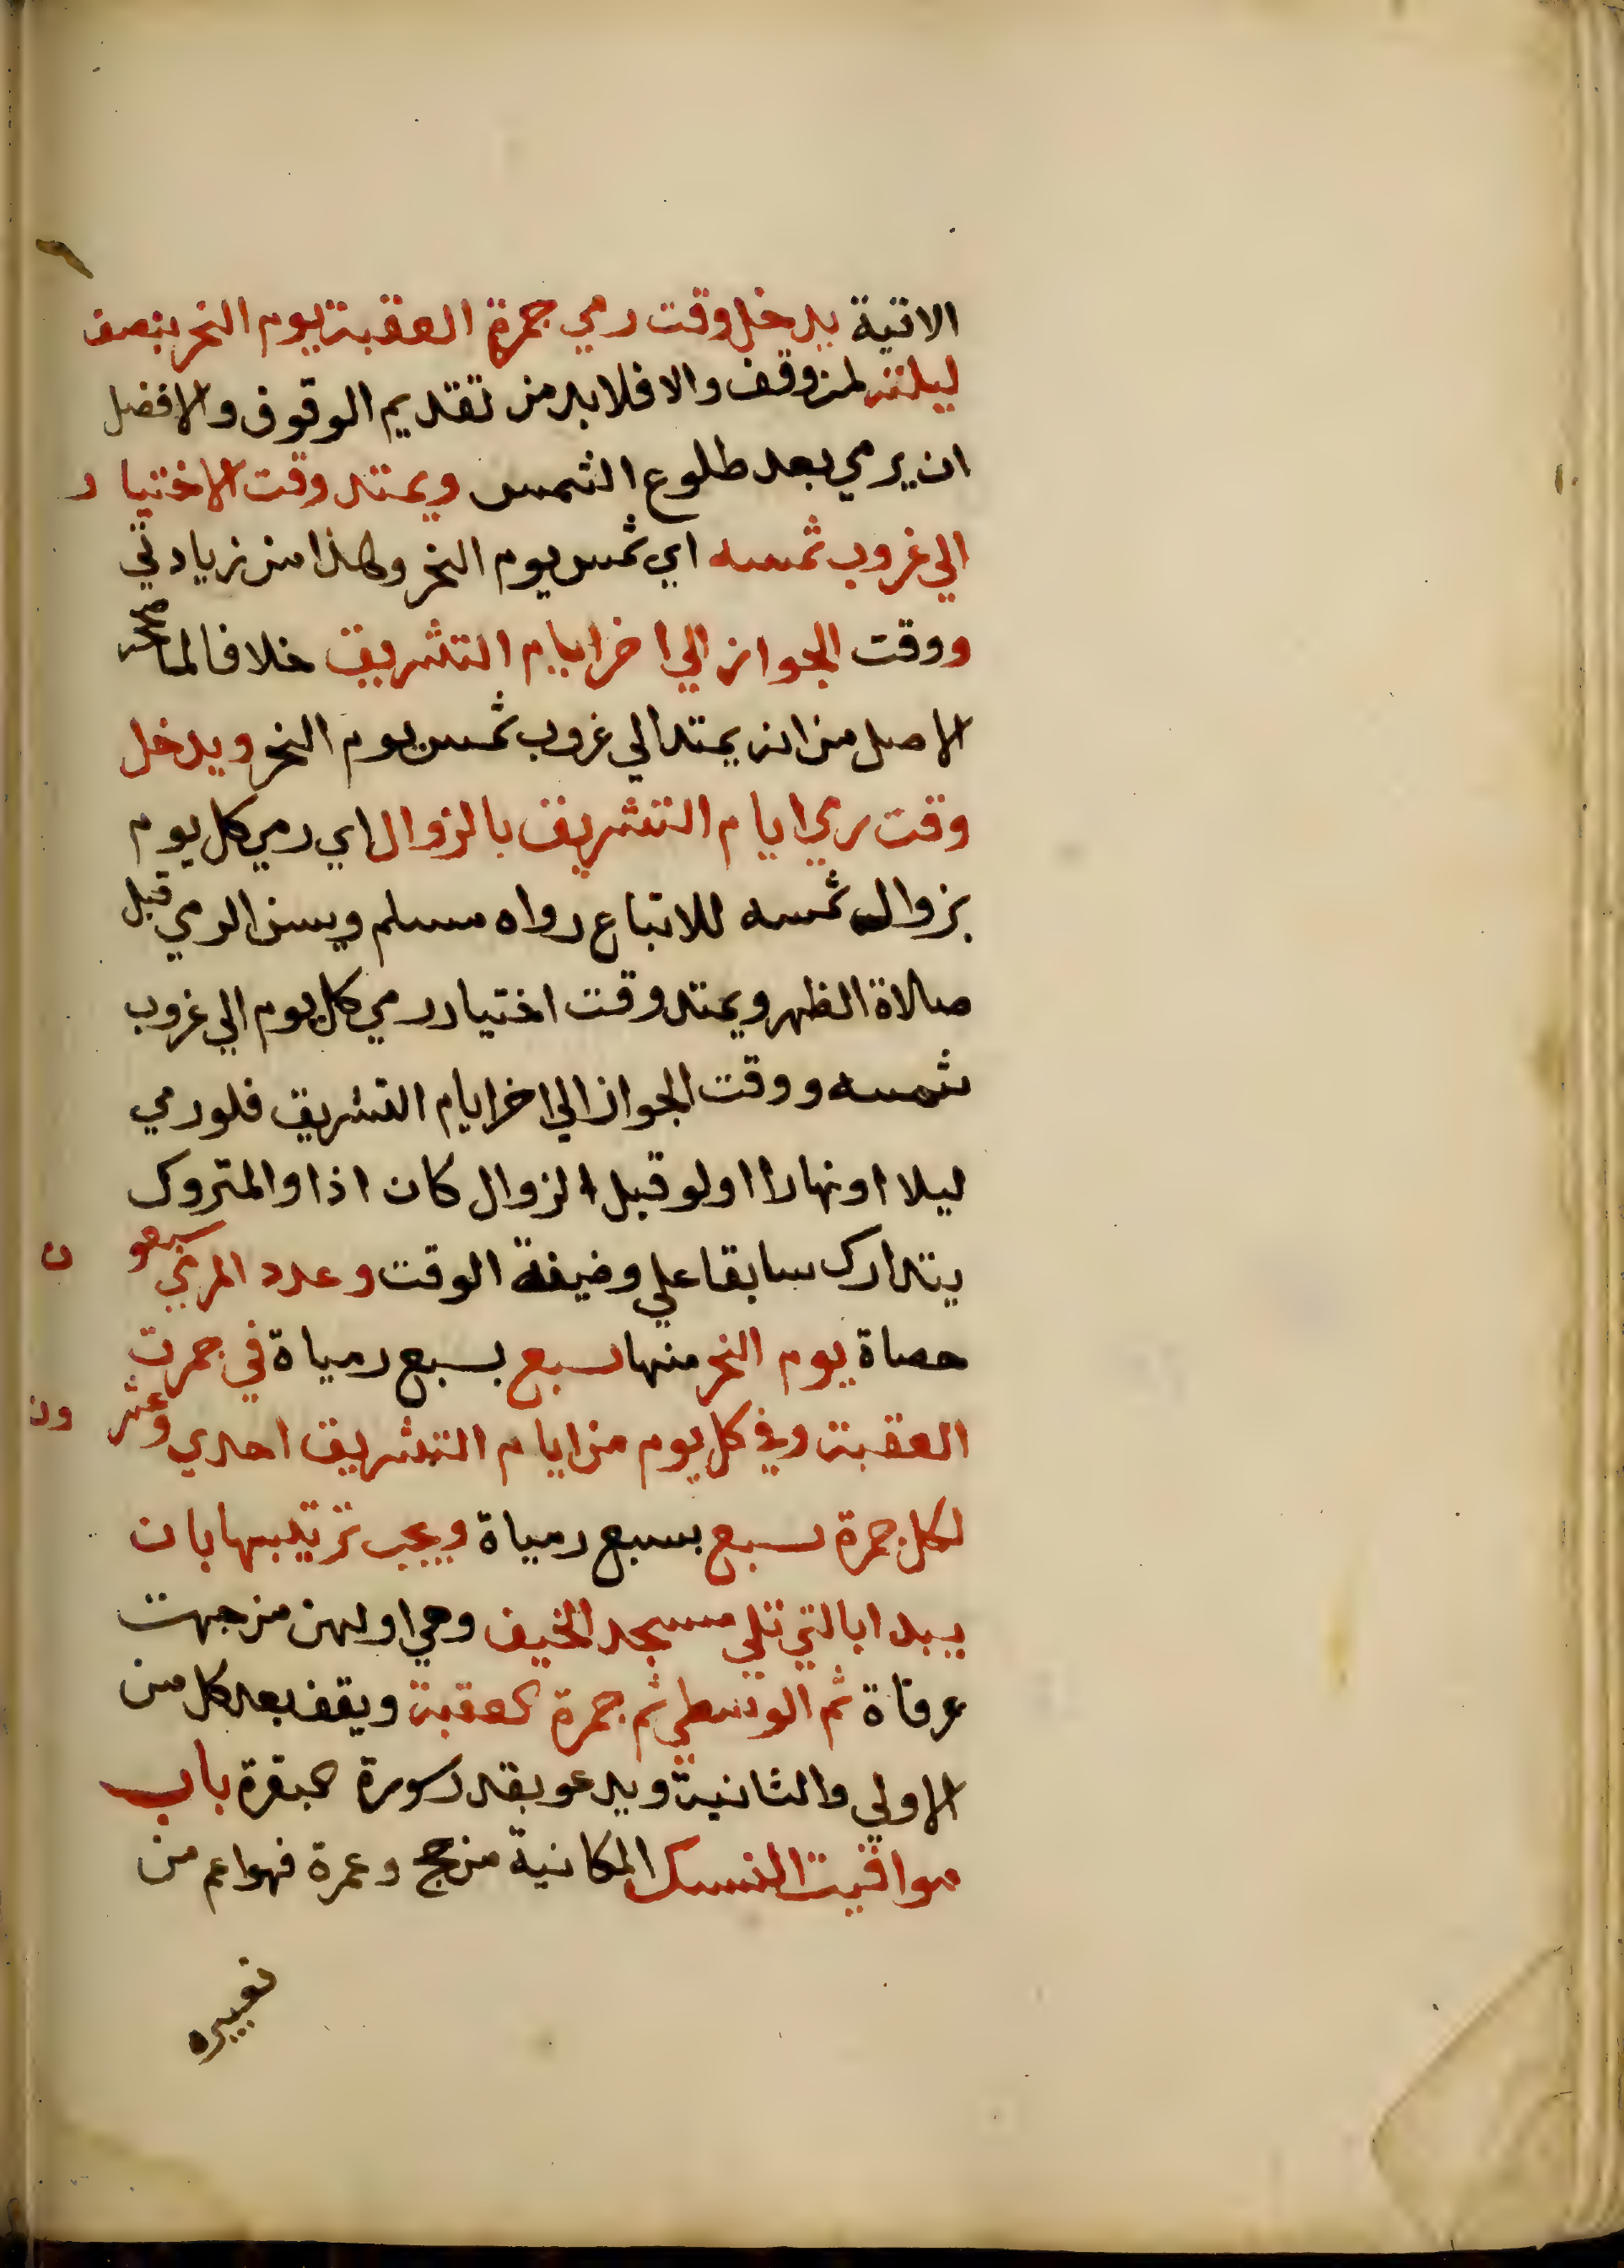 الاتية يدخل وقت رمي جمرة العقبة يوم النحر بنصف
ليلته لمن وقف والا فلابد من تقديم الوقوف والافضل
ان يرمي بعد طلوع الشمس ويمتد وقت الاختيار
الي غروب شمسه اي شمس يوم النحر وهذا من زيادتي
ووقت الجواز الي اخر ايام التشريق خلافا لما
الاصل من انه يمتد الي غروب شمس يوم النحر ويدخل
وقت رمي ايام التشريق بالزوال اي رمي كل يوم
بزوال شمسه للاتباع رواه مسلم ويسن الرمي قبل
صلاة الظهر ويمتد وقت اختيار رمي كل يوم الي غروب
شمسه ووقت الجواز الي اخر ايام التشريق فلو رمي
ليلا او نهارا ولو قبل الزوال كان اذا والمتروك
يتدارك سابقا علي وضيفة الوقت وعدد المرمي سبعون
حصاة يوم النحر منها سبع بسبع رمياة في جمرت
العقبة وفي كل يوم من ايام التشريق احدي وعشرون
لكل جمرة سبع بسبع رمياة ويجب ترتيبها بان
يبدا بالتي تلي مسجد الخيف وهي اولهن من جهت
عرفاة ثم الوسطي ثم جمرة العقبة ويقف بعد كل من
الاولي والثانية ويدعو بقدر سورة البقرة باب
مواقيت النسك المكانية من حج وعمرة فهو اعم من
تعبيره